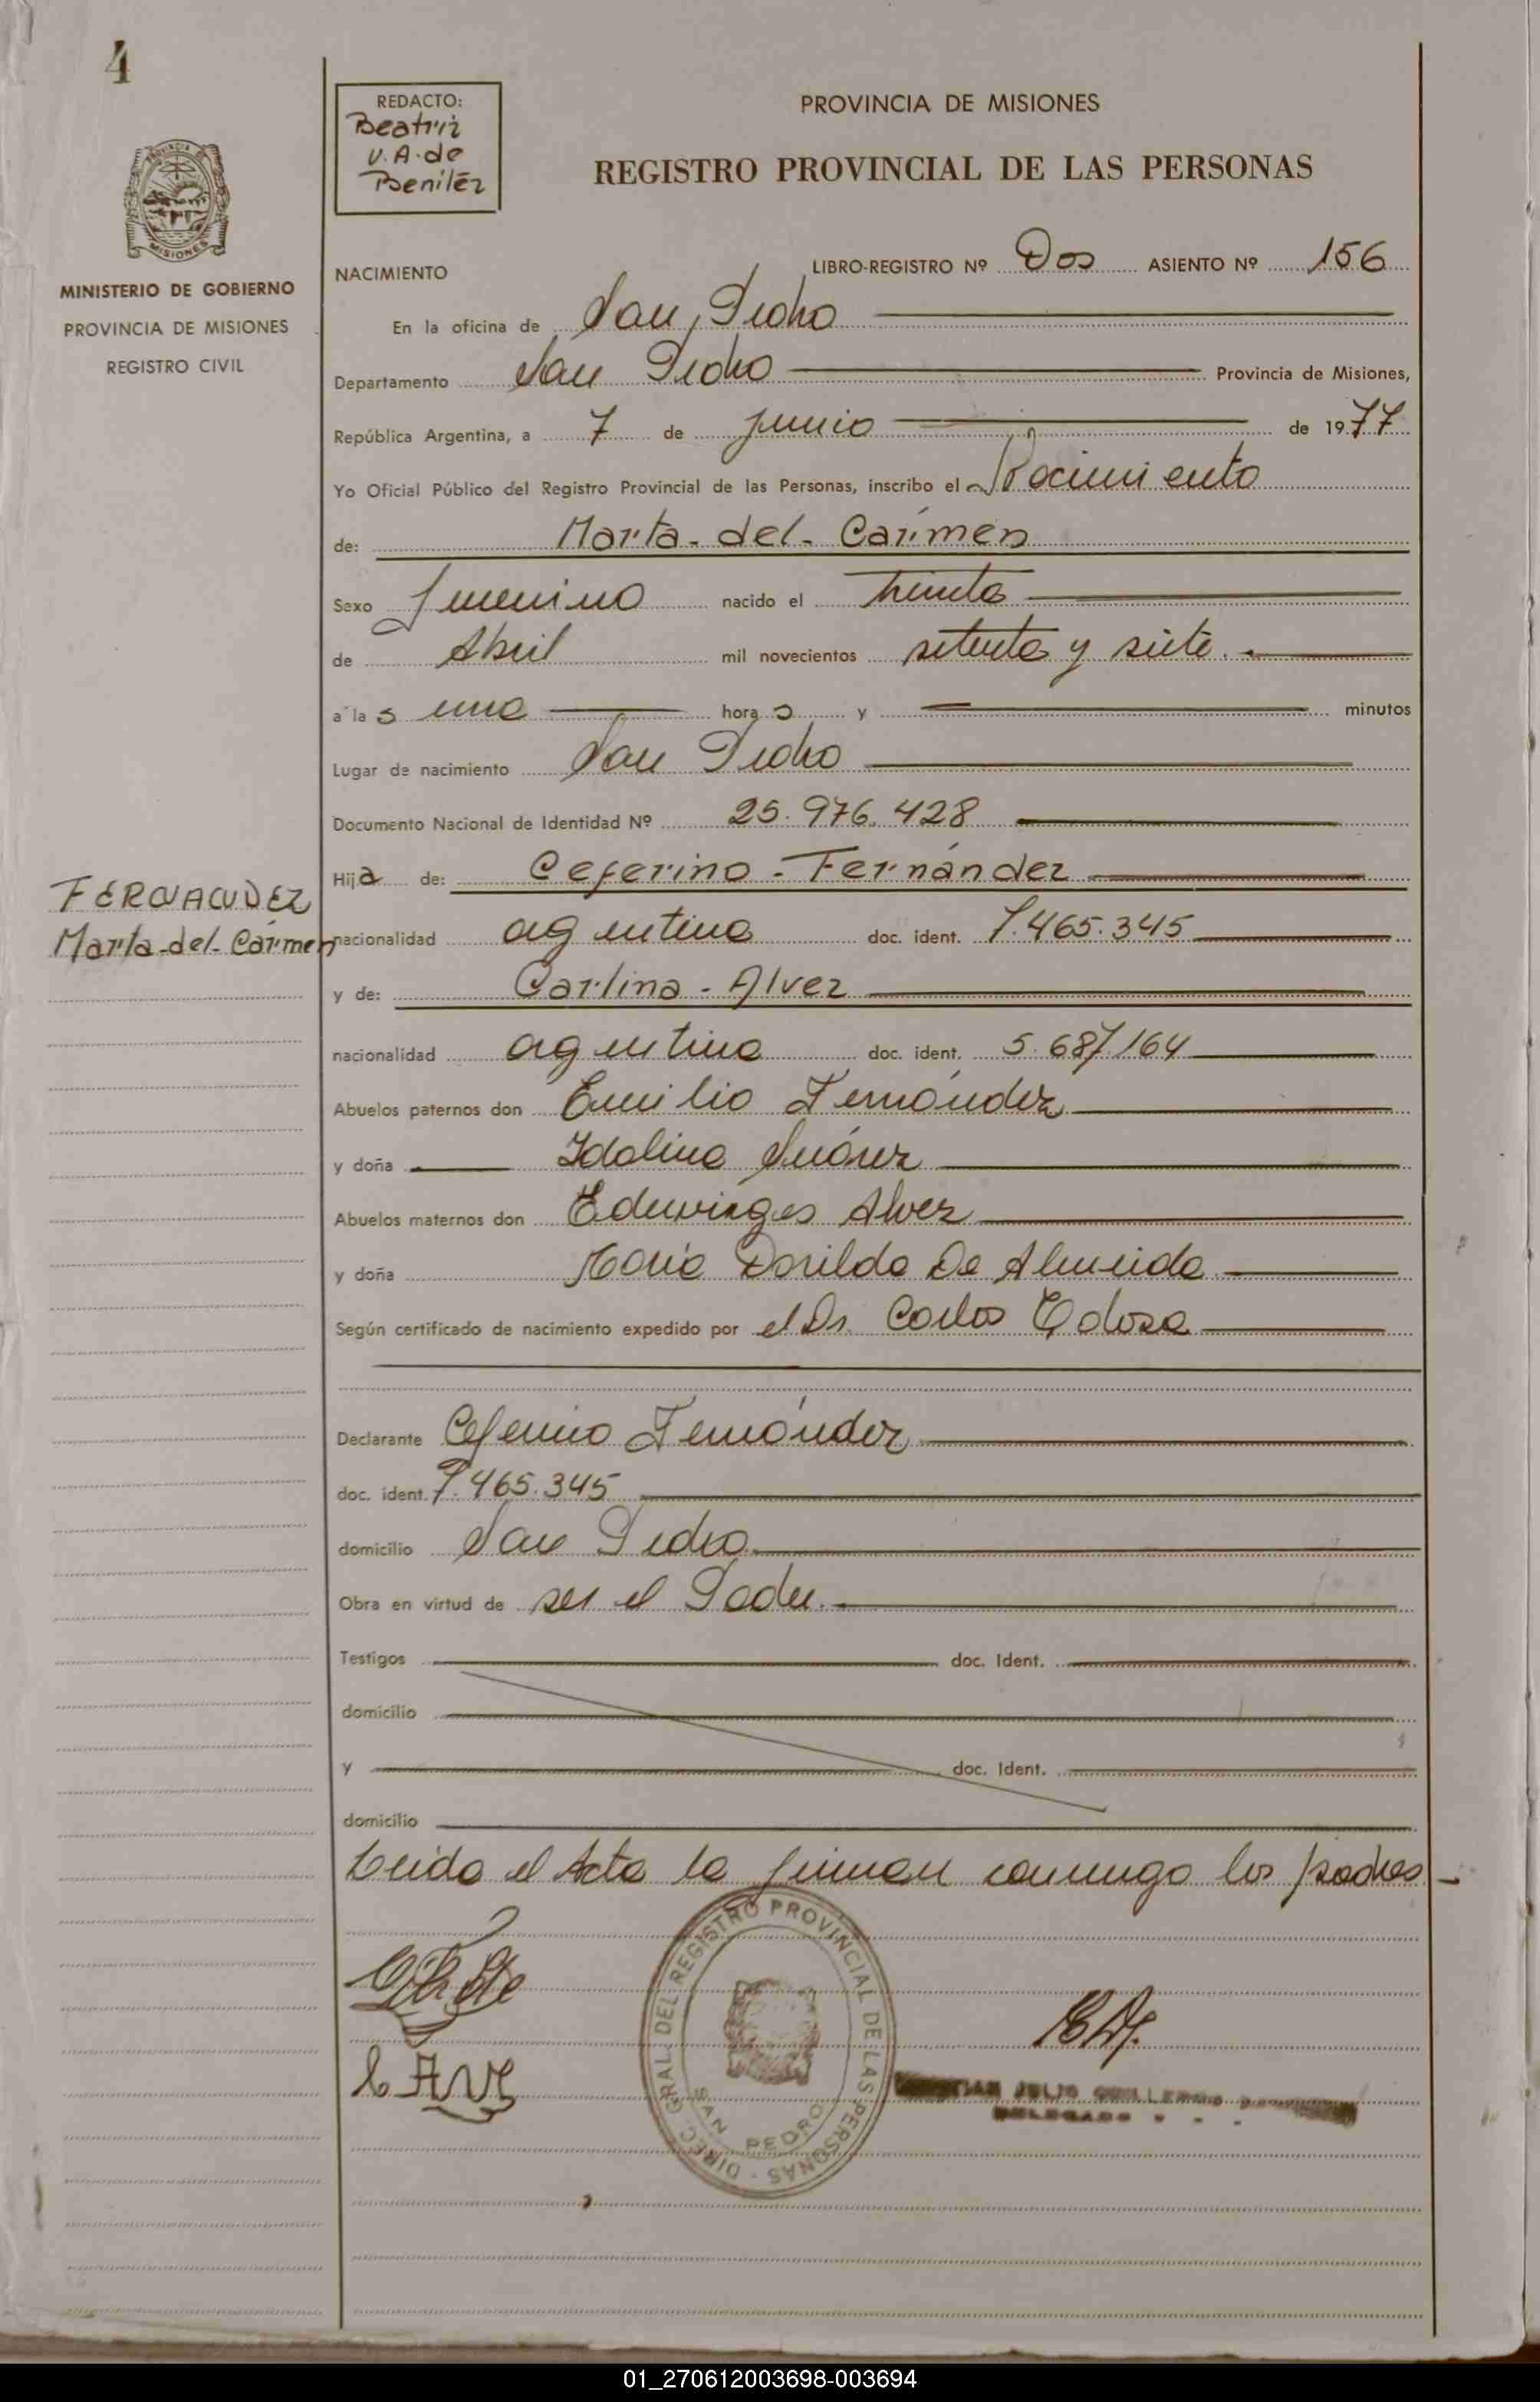 4
REDACTO:
Beatriz
V. A. de
Benitéz
PROVINCIA DE MISIONES
REGISTRO PROVINCIAL DE LAS PERSONAS
PROVINCIA DE
MISIONES
MINISTERIO DE GOBIERNO
PROVINCIA DE MISIONES
REGISTRO CIVIL
NACIMIENTO
LIBRO-REGISTRO Nº Dos ASIENTO Nº 156
En la oficina de San Pedro
Departamento San Pedro Provincia de Misiones,
República Argentina, a 7 de junio de 1977
Yo Oficial Público del Registro Provincial de las Personas, inscribo el Nacimiento
de: Marta - del - Carmen
Sexo femenino nacido el treinta
de Abril mil novecientos setenta y siete.
a las una horas y minutos
Lugar de nacimiento San Pedro
Documento Nacional de Identidad Nº 25.976.428
Hija de: Ceferino - Fernández
FERNANDEZ
Marta - del - Carmen
nacionalidad argentina doc. ident. 7.465.345
y de: Carlina - Alvez
nacionalidad argentina doc. ident. 5.687.164
Abuelos paternos don Emilio Fernández
y doña Idalina Suárez
Abuelos maternos don Eduwirges Alvez
y doña María Dorilda De Almeida
Según certificado de nacimiento expedido por el Dr. Carlos Tolosa
Declarante Ceferino Fernández
doc. ident. 7.465.345
domicilio San Pedro
Obra en virtud de ser el Padre.
Testigos doc. Ident.
domicilio
y doc. Ident.
domicilio
Leida el Acta la firman conmigo los padres
DIREC. GRAL. DEL REGISTRO PROVINCIAL DE LAS PERSONAS
SAN PEDRO
JULIO GUILLERMO
DELEGADO
01_270612003698-003694